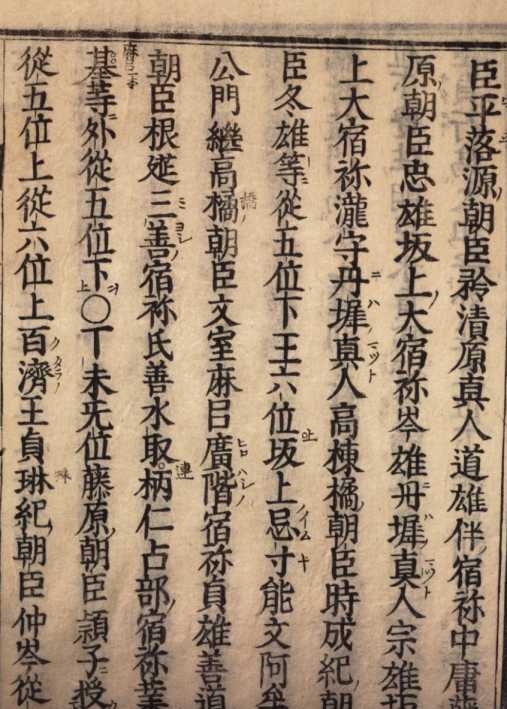 臣平落源朝臣矜漬原真人道雄伴宿祢中庸
原朝臣忠雄坂上大宿祢岑雄丹墀真人宗雄
上大宿祢瀧守丹墀真人高棟橘朝臣時成紀朝
臣冬雄等從五位下王六位坂上忌寸能文阿
公門繼高橘朝臣文室麻呂廣階宿祢貞雄善道
朝臣根莚三善宿祢氏善水取柄仁占部宿祢
基等外從五位下○丁未旡位藤原朝臣頴子授
從五位上從六位上百濟王貞琳紀朝臣仲岑從